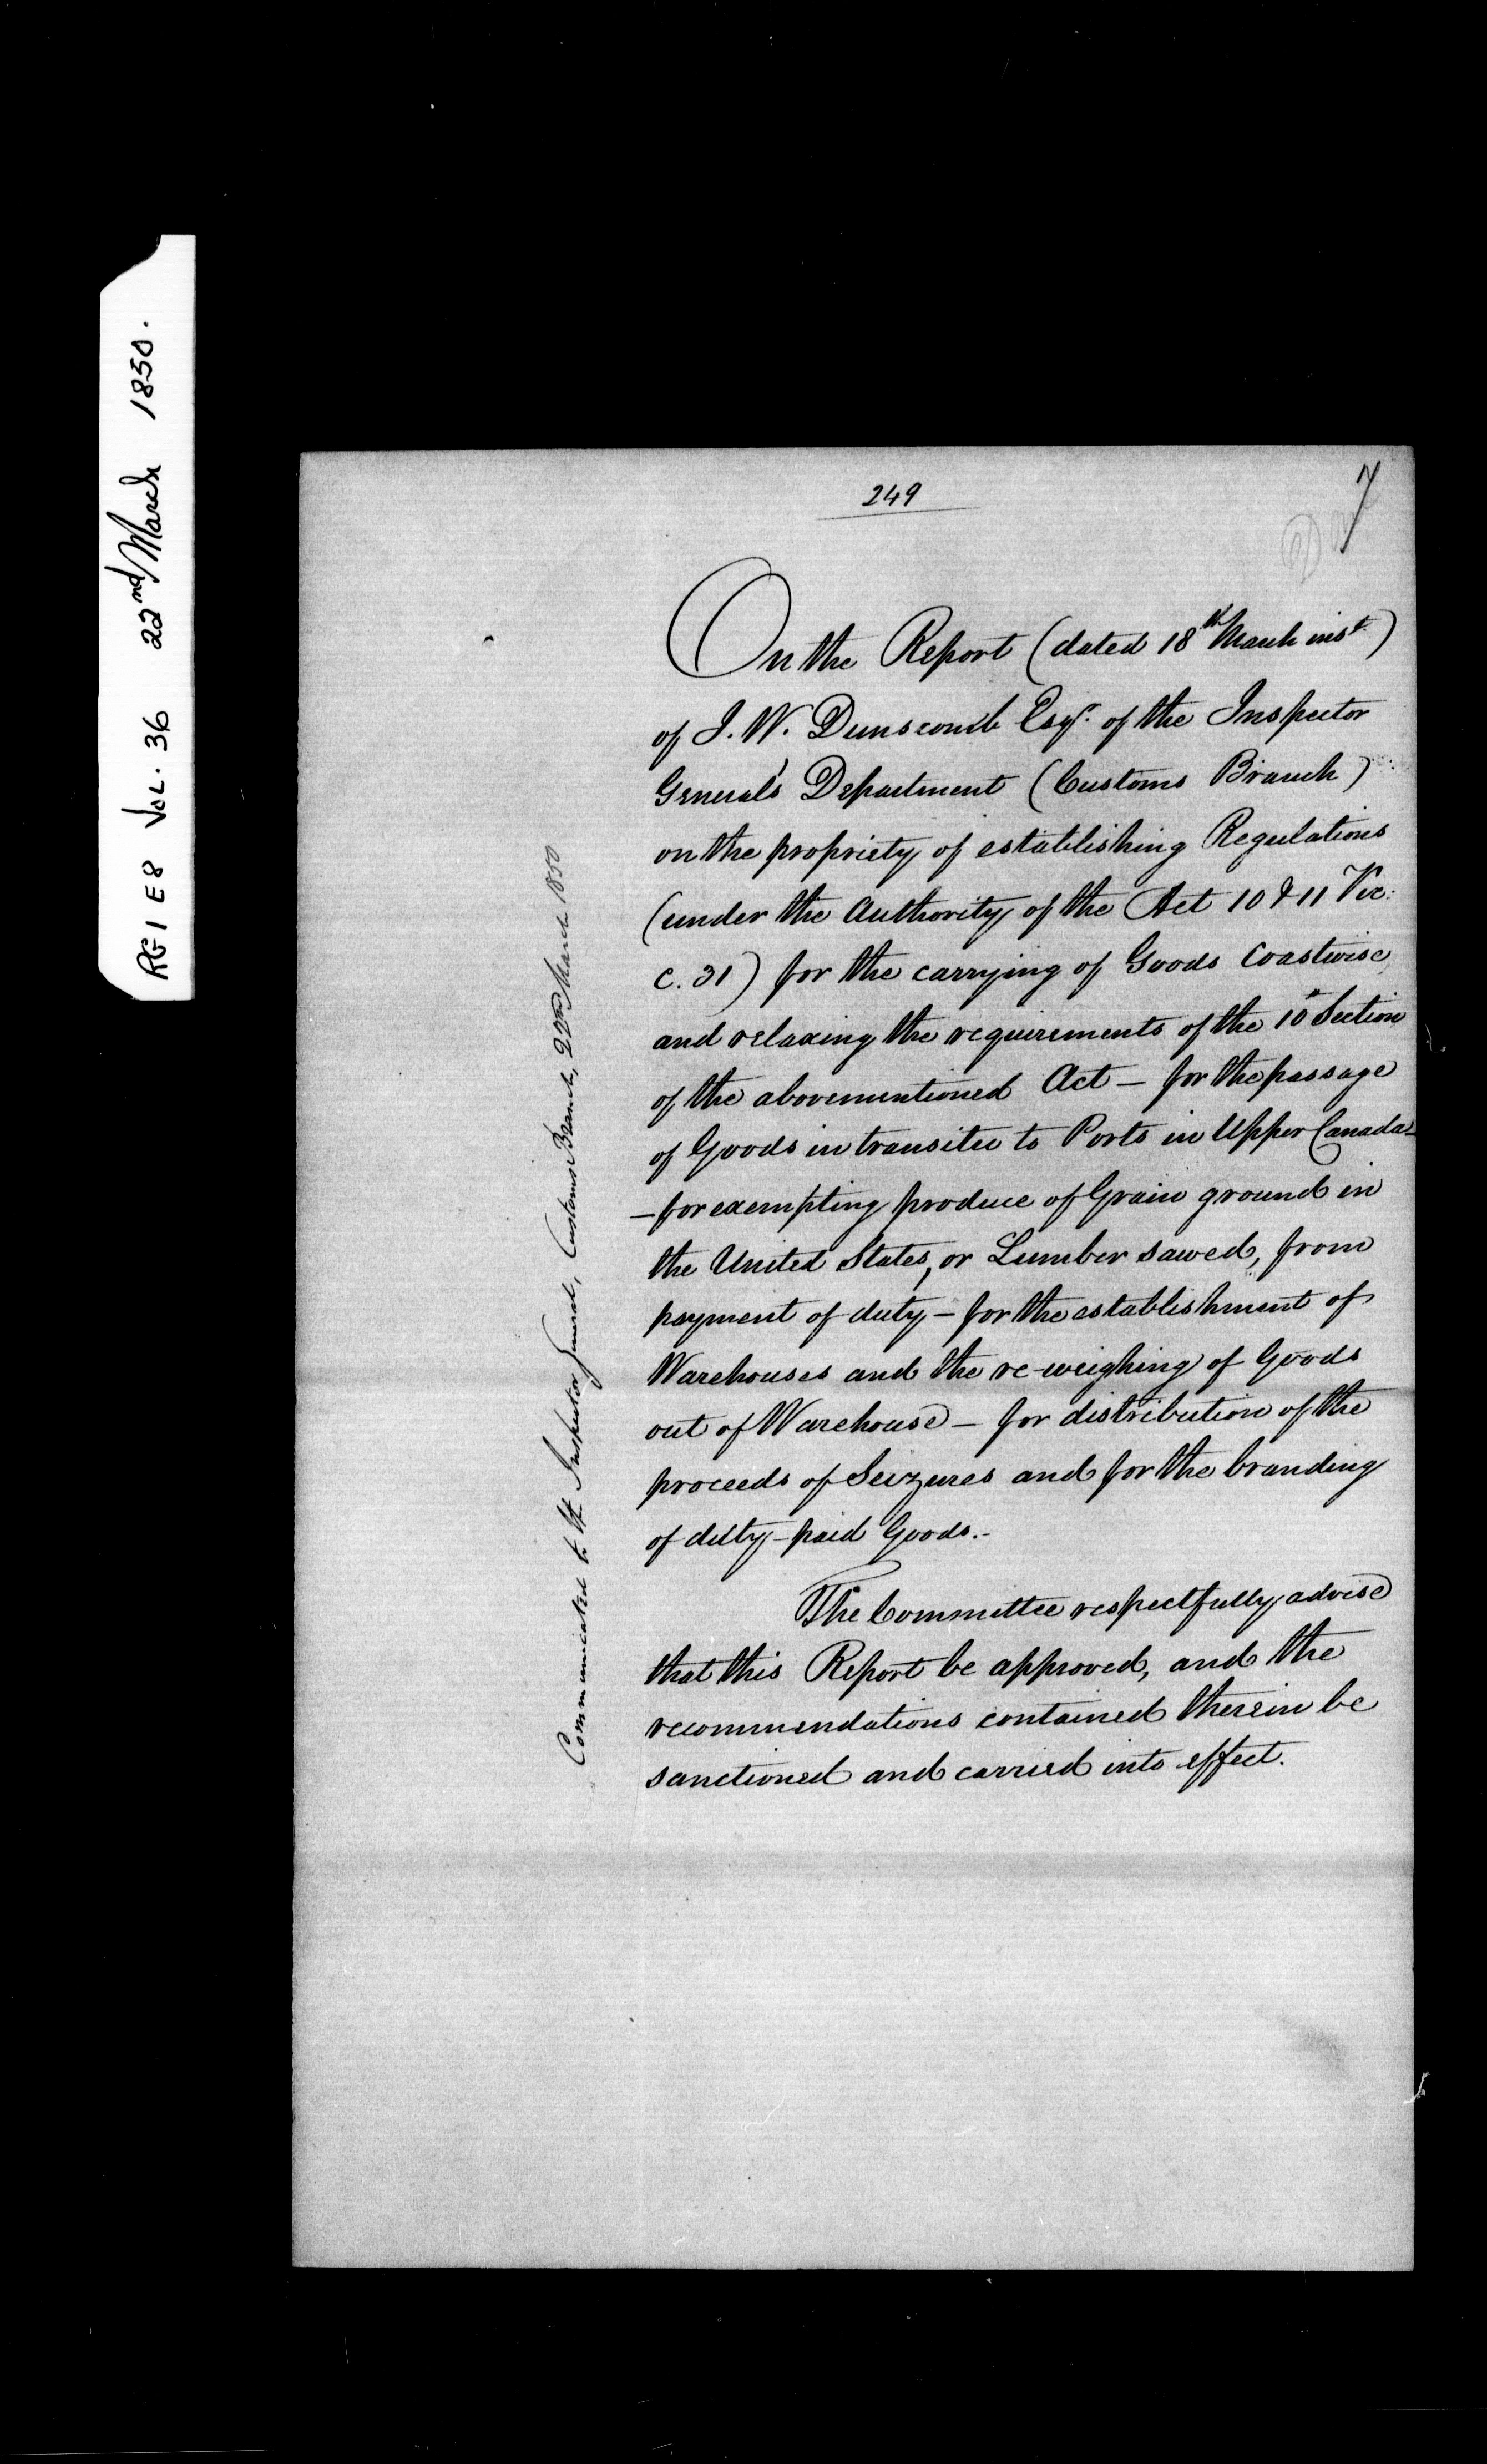 RG1 E8 VOL. 36 22nd March 1850.
249
7
On the Report (dated 18th March inst.)
of J. W. Dunscomb Esqr. of the Inspector
General's Department (Customs Branch)
on the propriety of establishing Regulations
(under the Authority of the Act 10 & 11 Vic:
c. 31) for the carrying of Goods Coastwise
and relaxing the requirements of the 10th Section
of the abovementioned Act – for the passage
of Goods in transitu to Ports in Upper Canada –
– for exempting produce of Grain ground in
the United States, or Lumber sawed, from
payment of duty – for the establishment of
Warehouses and the re-weighing of Goods
out of Warehouse – for distribution of the
proceeds of Seizures and for the branding
of duty-paid Goods.–
The Committee respectfully advise
that this Report be approved, and the
recommendations contained therein be
sanctioned and carried into effect.
Communicated to the Inspector General, Customs Branch, 22nd March 1850